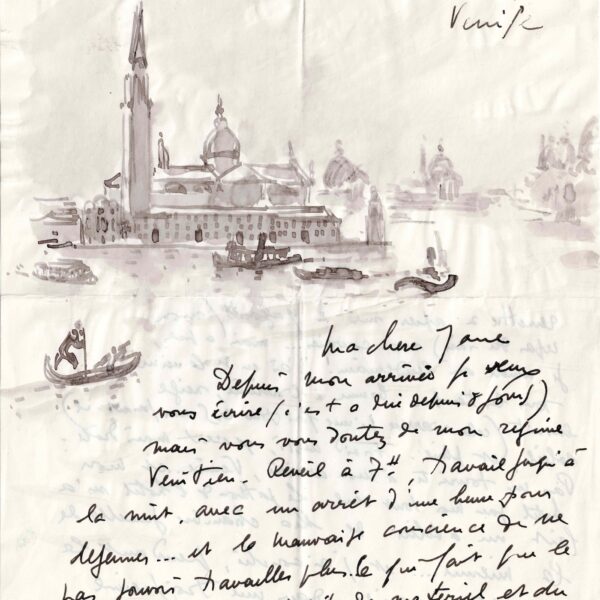 Venise
ma chere Jane
Depuis mon arrivée je veux
vous écrire (c'est a dire depuis 8 jours)
mais vous vous doutez de mon regime
Venitien. Reveil à 7H, travail jusqu'à
la nuit. avec un arrêt d'une heure pour
dejeuner... et la mauvaise conscience de ne
pas pouvoir travailler plus. le qui fait que le
materiel et du